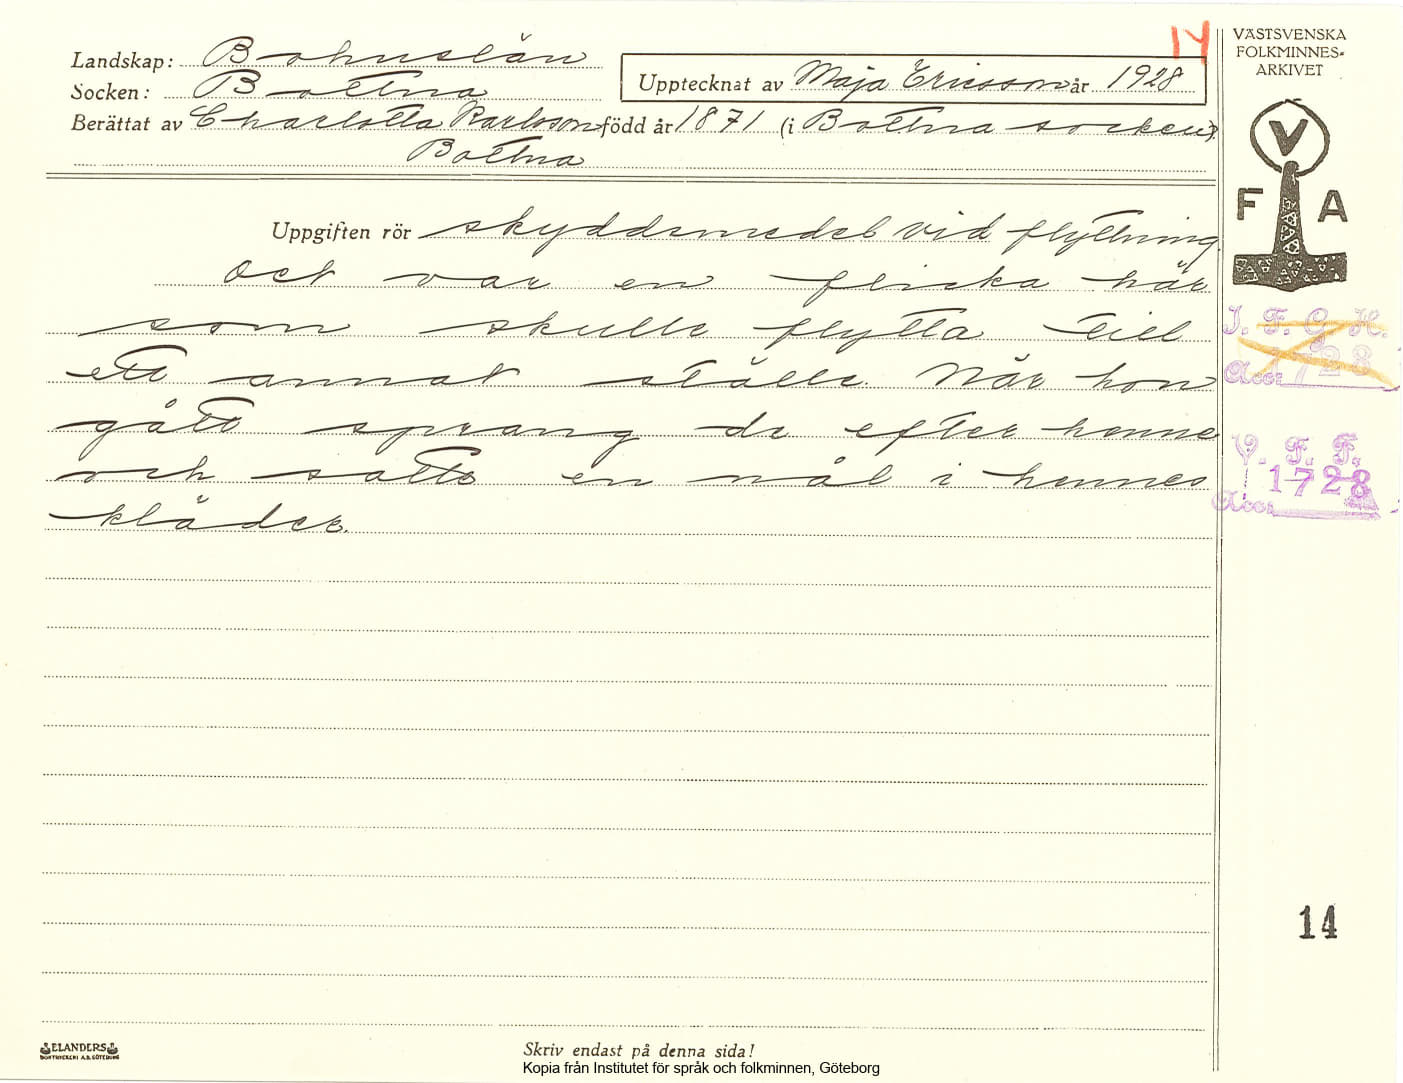 14
VÄSTSVENSKA
FOLKMINNES-
ARKIVET
Landskap: Bohuslän
Socken: Bottna
Upptecknat av Maja Ericsson år 1928
Berättat av Charlotta Karlsson född år 1871 (i Bottna socken)
Bottna
V
F A
Uppgiften rör skyddsmedel vid flyttning.
Det var en flicka här
som skulle flytta till
ett annat ställe. När hon
gått sprang de efter henne
och satte en nål i hennes
kläder.
I. F. G. H.
Acc: 1728
V. F. F.
Acc: 1728
14
ELANDERS
BOKTRYCKERI A.B. GÖTEBORG
Skriv endast på denna sida!
Kopia från Institutet för språk och folkminnen, Göteborg